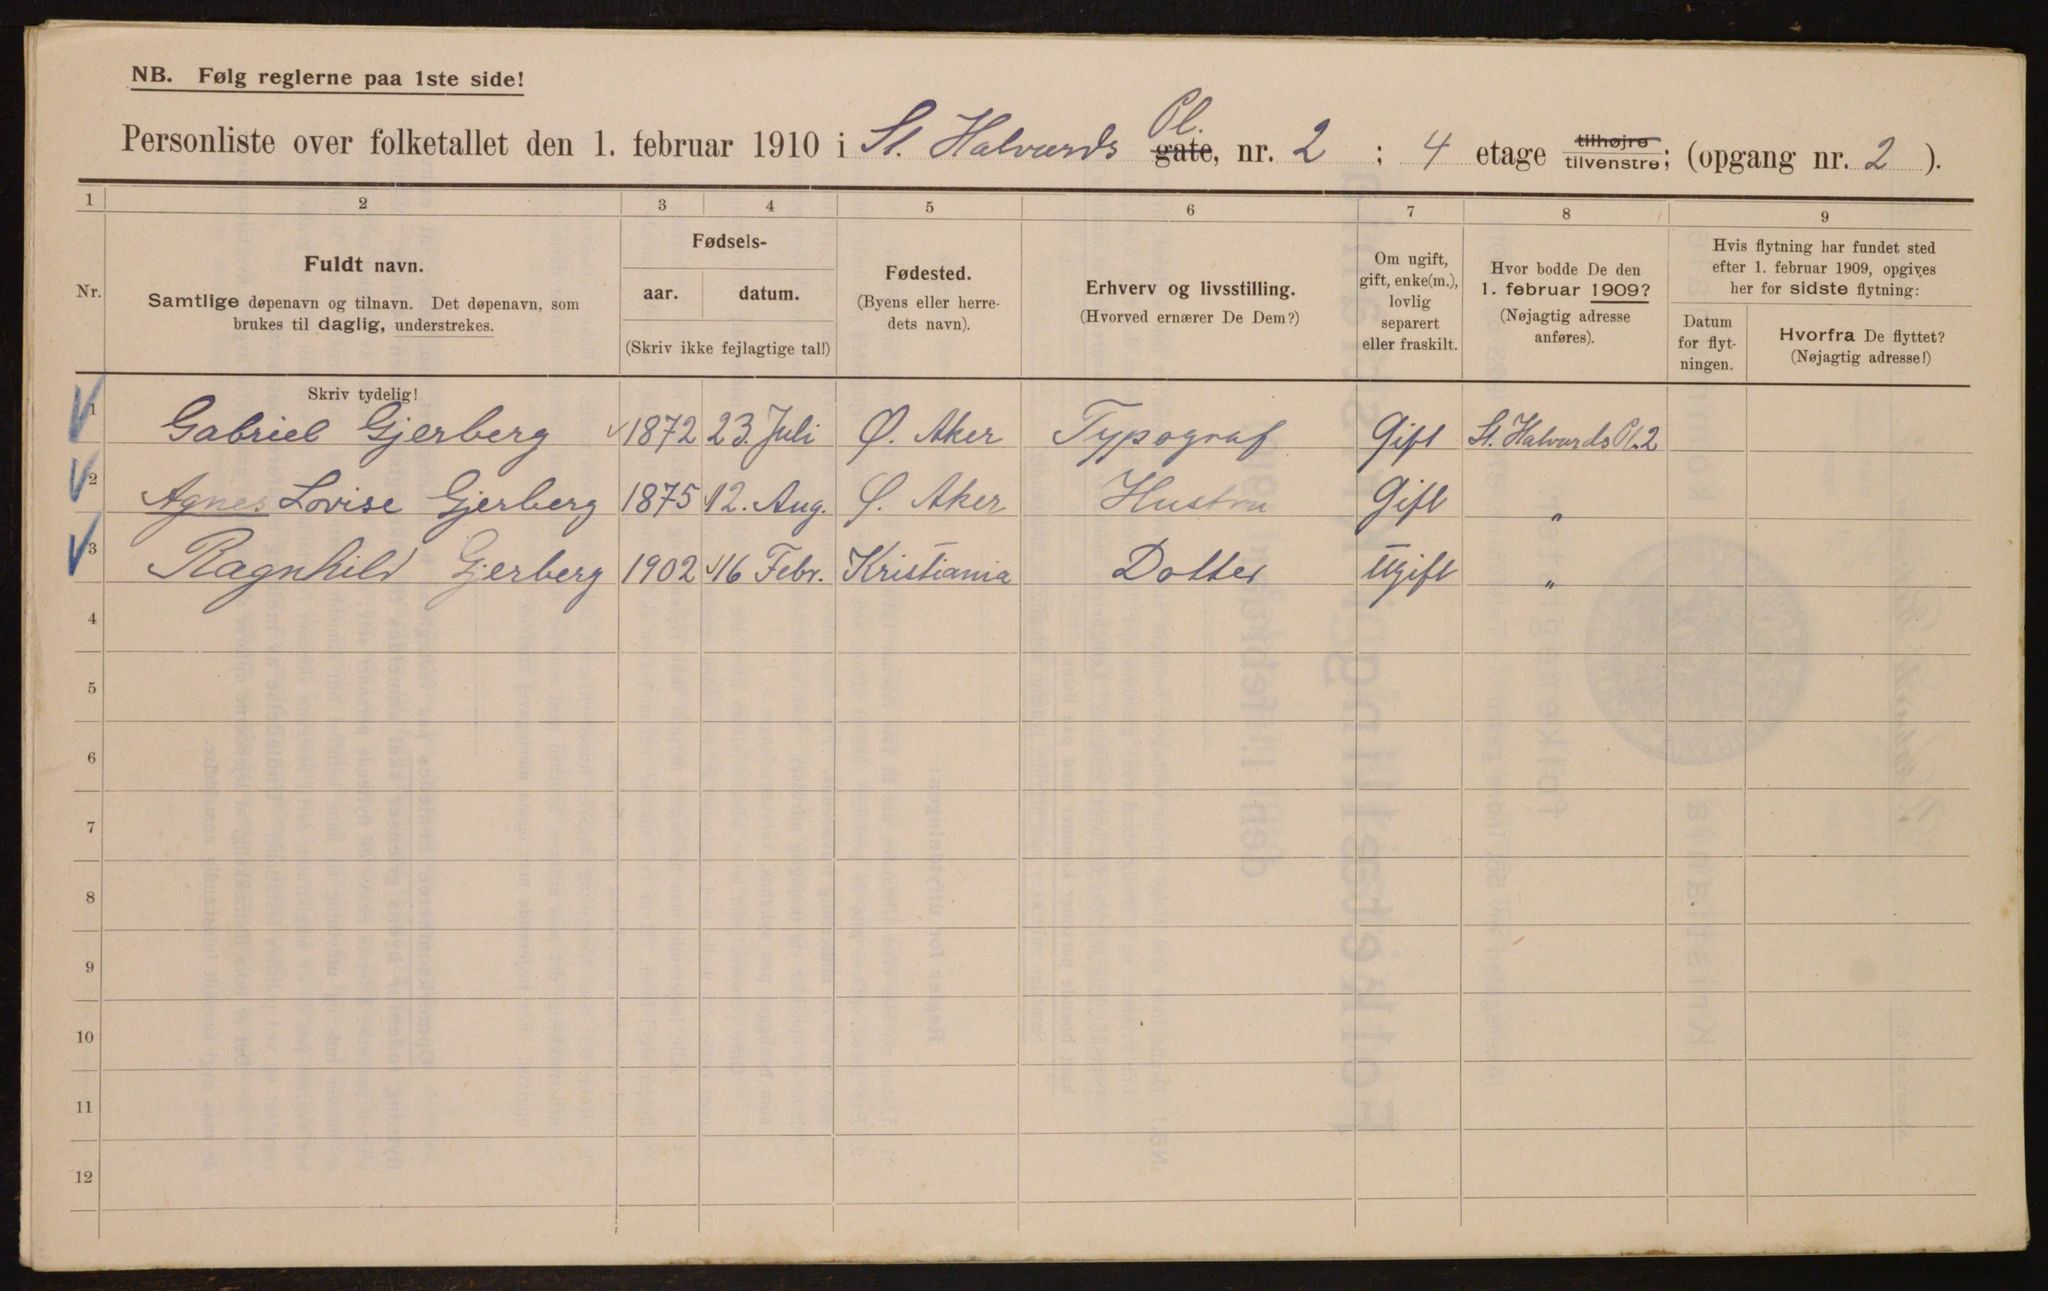 NB. Følg reglerne paa 1ste side!
Personliste over folketallet den 1. februar 1910 i St. Halvards Pl. gate, nr. 2 ; 4 etage tilhøjre tilvenstre; (opgang nr. 2 ).
1 2 3 4 5 6 7 8 9
Nr.
Fuldt navn.
Samtlige døpenavn og tilnavn. Det døpenavn, som
brukes til daglig, understrekes.
Skriv tydelig!
Fødsels-
aar. datum.
(Skriv ikke fejlagtige tal!)
Fødested.
(Byens eller herre-
dets navn).
Erhverv og livsstilling.
(Hvorved ernærer De Dem?)
Om ugift,
gift, enke(m.),
lovlig
separert
eller fraskilt.
Hvor bodde De den
1. februar 1909?
(Nøjagtig adresse
anføres).
Hvis flytning har fundet sted
efter 1. februar 1909, opgives
her for sidste flytning:
Datum
for flyt-
ningen.
Hvorfra De flyttet?
(Nøjagtig adresse!)
1 Gabriel Gjerberg 1872 23. Juli Ø. Aker Typograf Gift St. Halvards Pl. 2
2 Agnes Lovise Gjerberg 1875 12. Aug. Ø. Aker Hustru Gift "
3 Ragnhild Gjerberg 1902 16 Febr. Kristiania Dotter Ugift "
4
5
6
7
8
9
10
11
12